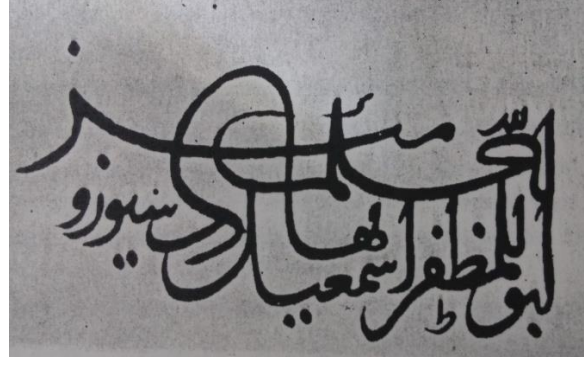 الحکم لله
ابو المظفر اسمعیل بهادر سیوزومیز